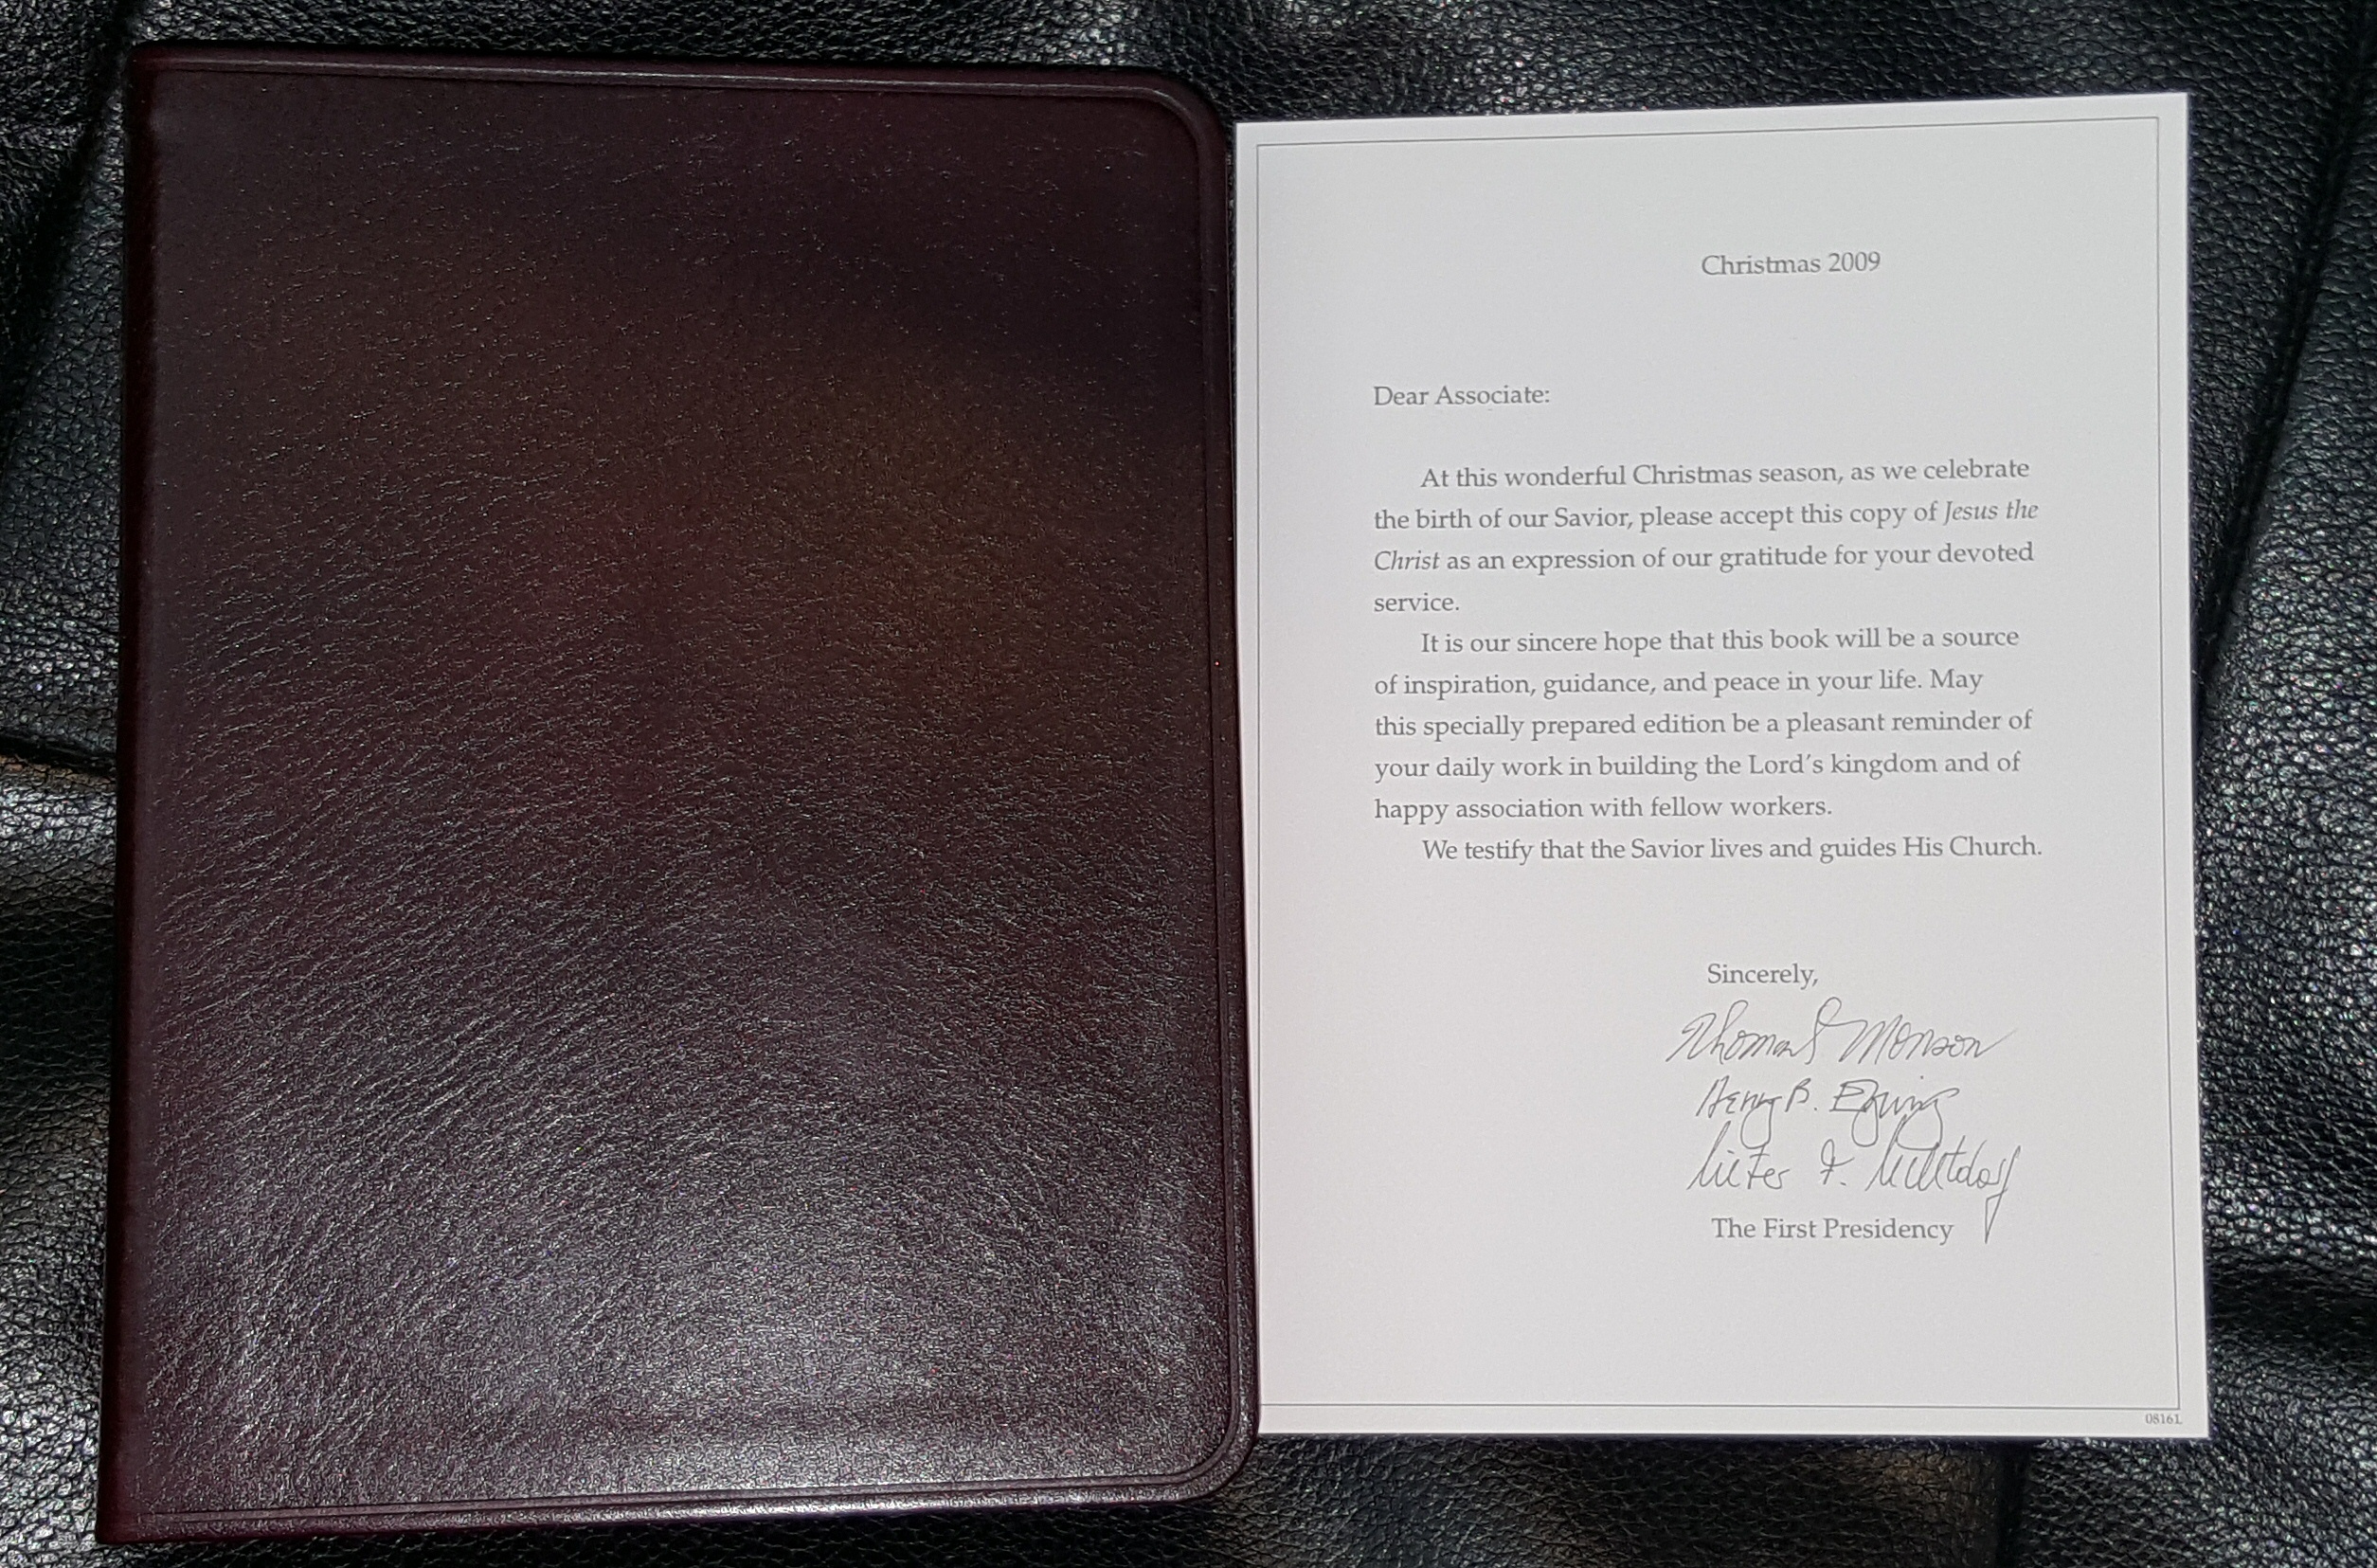 Christmas 2009
Dear Associate:
At this wonderful Christmas season, as we celebrate
the birth of our Savior, please accept this copy of Jesus the
Christ as an expression of our gratitude for your devoted
service.
It is our sincere hope that this book will be a source
of inspiration, guidance, and peace in your life. May
this specially prepared edition be a pleasant reminder of
your daily work in building the Lord's kingdom and of
happy association with fellow workers.
We testify that the Savior lives and guides His Church.
Sincerely,
Thomas S Monson
Henry B. Eyring
Dieter F. Uchtdorf
The First Presidency
08161